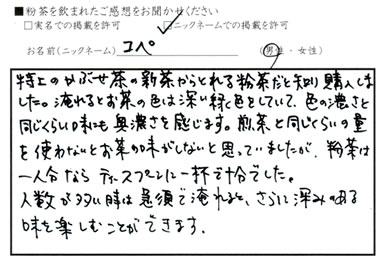 ■粉茶を飲まれたご感想をお聞かせください
□実名での掲載を許可 □ニックネームでの掲載を許可
お名前(ニックネーム) コペ (男性・女性)
特上のかぶせ茶の新茶からとれる粉茶だと知り購入しま
した。淹れるとお茶の色は深い緑色をしていて、色の濃さと
同じくらい味にも奥濃さを感じます。煎茶と同じくらいの量
を使わないとお茶の味がしないと思っていましたが、粉茶は
一人分なら ティースプーンに一杯で十分でした。
人数が多い時は急須で淹れると、さらに深みのある
味を楽しむことができます.